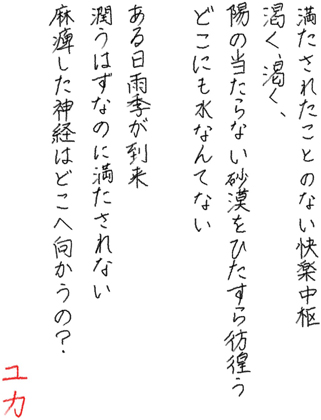 満たされたことのない快楽中枢
渇く、渇く、
陽の当たらない砂漠をひたすら彷徨う
どこにも水なんてない
ある日雨季が到来
潤うはずなのに満たされない
麻痺した神経はどこへ向かうの？
ユカ